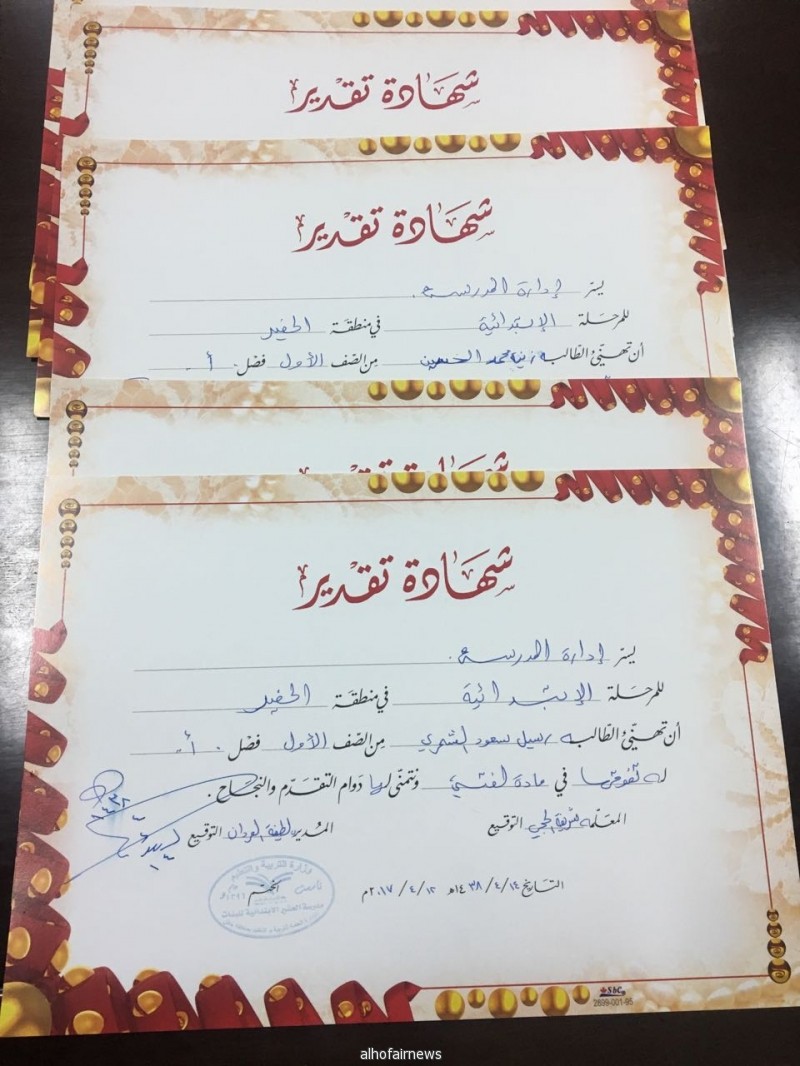 شهادة تقدير
شهادة تقدير
يسر إدارة المدرسة
للمرحلة الإبتدائية في منطقة الحفير
أن تهنئ الطالبه محمد الحسين من الصف الأول فصل أ
شهادة تقدير
شهادة تقدير
يسر إدارة المدرسة
للمرحلة الإبتدائية في منطقة الحفير
أن تهنئ الطالبه رسيل سعود الشمري من الصف الأول فصل أ
له تفوقها في مادة لغتي ونتمنى لها دوام التقدم والنجاح .
المعلمه التوقيع المدير لطيفة التوقيع
وزارة التربية والتعليم
الختم
التاريخ ١٤٣٨/٤/١٤ه ٢٠١٧/٤/١٢م
SBC
2899-001-95
alhofairnews